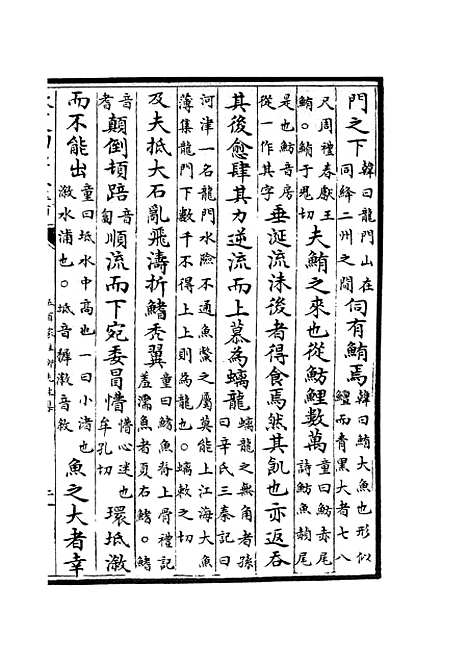 門之下韓曰龍門山在同絳二州之間伺有鮪焉韓曰鮪大魚也形似鱣而青黑大者七八
尺周禮春獻王鮪。鮪于鬼切夫鮪之來也從魴鯉數萬童曰魴赤尾詩魴魚赬尾
是也魴音房從一作其字垂涎流沫後者得食焉然其飢也亦返吞
其後愈肆其力逆流而上慕為螭龍螭龍之無角者孫曰辛氏三秦記曰
河津一名龍門水險不通魚鱉之屬莫能上江海大魚薄集龍門下數千不得上上則為龍也。螭敕之切
及夫抵大石亂飛濤折鰭禿翼童曰魴魚脊上骨禮記羞濡魚者夏右鰭。鰭
音耆顛倒頓踣音匐順流而下宛委冒懵懵心迷也牟孔切環坻漵
而不能出童曰坻水中高也一曰小渚也漵水浦也。坻音墀漵音敘魚之大者幸